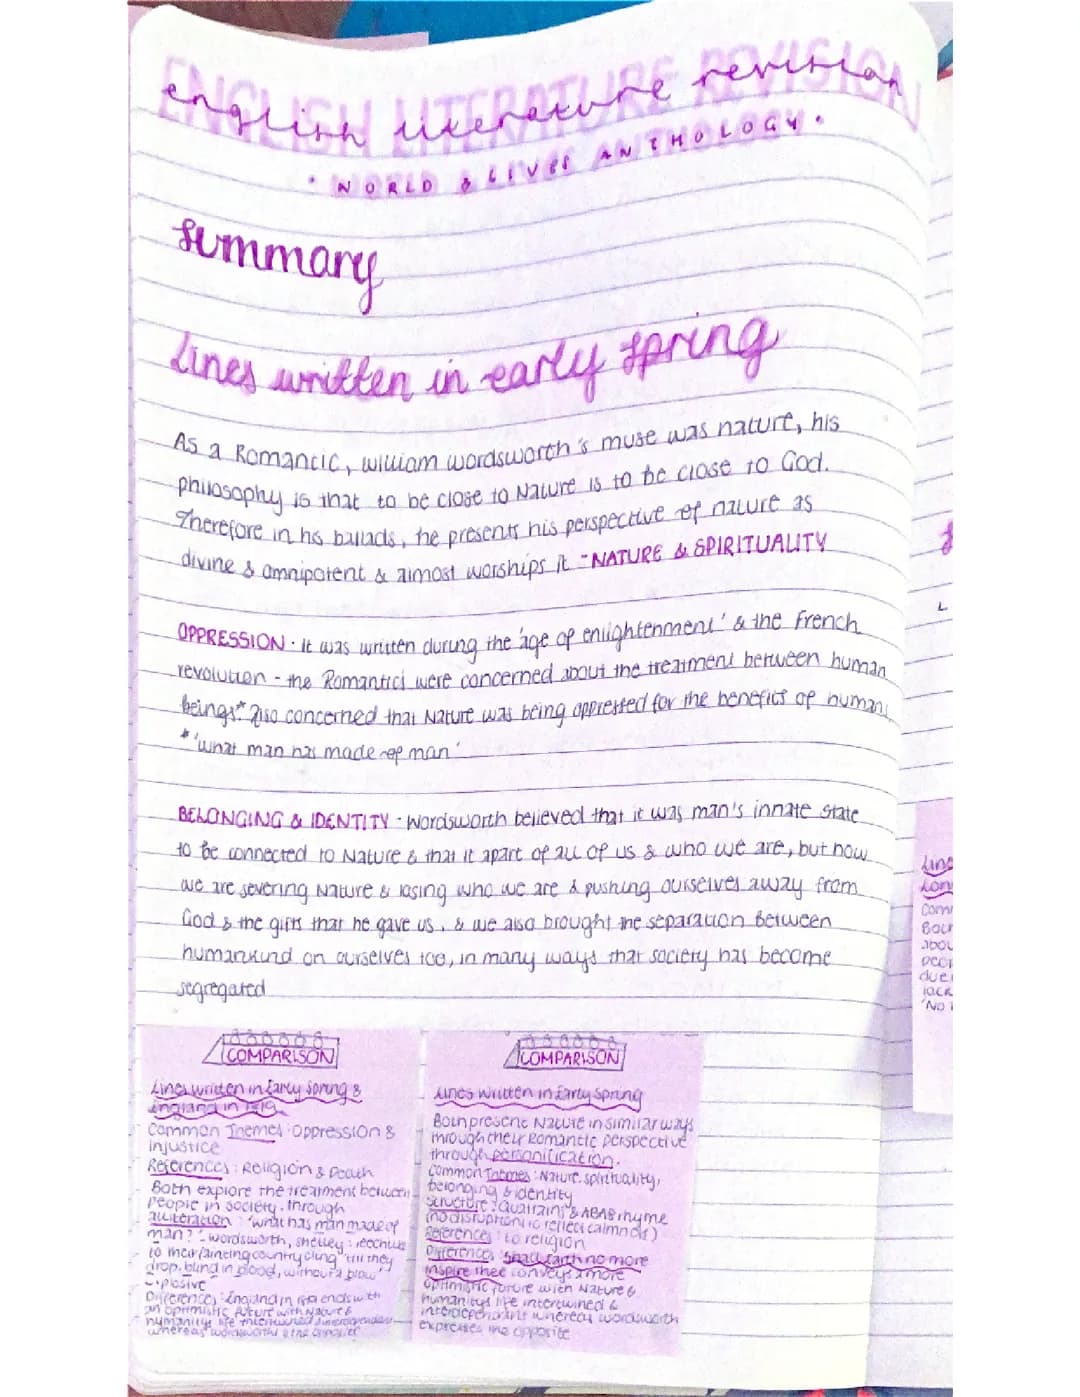 ENGLISH LITERATURE REVISION
english literature revision
• WORLD & LIVES ANTHOLOGY •
summary
Lines written in early spring
As a Romantic, William Wordsworth's muse was nature, his
philosophy is that to be close to Nature is to be close to God.
Therefore in his ballads, he presents his perspective of nature as
divine & omnipotent & almost worships it - NATURE & SPIRITUALITY
OPPRESSION - it was written during the 'age of enlightenment' & the French
revolution - the Romantics were concerned about the treatment between human
beings* also concerned that Nature was being oppressed for the benefits of humans
* 'what man has made of man'
BELONGING & IDENTITY - Wordsworth believed that it was man's innate state
to be connected to Nature & that it apart of all of us & who we are, but now
we are severing Nature & losing who we are & pushing ourselves away from
God & the gifts that he gave us, & we also brought the separation between
humankind on ourselves too, in many ways that society has become
segregated
COMPARISON
Lines written in Early Spring &
England in 1819
Common Themes: Oppression &
injustice
References: Religion & Death
Both explore the treatment between
people in society, through
alliteration: 'what has man made of
man?' - Wordsworth, Shelley:
to their fainting country cling 'till they
drop, blind in blood, without a blow'
- plosive
Difference: England in 1819 ends with
an optimistic future with Nature &
humanitys life intertwined & interdependent
whereas wordsworth is the opposite
COMPARISON
Lines Written in Early Spring
Both present Nature in similar ways
through their Romantic perspective
through personification.
Common Themes: Nature, spirituality,
belonging & identity
Structure: Quatrains & ABAB rhyme
(no disruption to reflect calmness)
References: to religion
Difference: 'Shall earth no more
inspire thee' conveys a more
optimistic future with Nature &
humanitys life intertwined &
interdependant whereas wordsworth
expresses the opposite
Line
Lon
Com
Bot
abou
peop
due
lack
'No